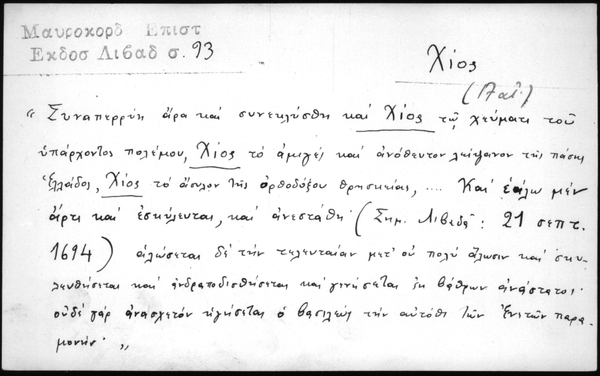 Μαυροκορδ Επιστ
Εκδοσ Λιβαδ σ. 93
Χίος
(17 αἰ.)
« Συναπερρύη ἄρα καὶ συνεκλύσθη καὶ Χίος τῷ χεύματι τοῦ
ὑπάρχοντος πολέμου, Χίος τὸ ἀμιγές καὶ ἀνόθευτον λείψανον τῆς πάσης
Ἑλλάδος, Χίος τὸ ἄσυλον τῆς ὀρθοδόξου θρησκείας, .... Καὶ ἑάλω μέν
ἄρτι καὶ ἐσκύλευται, καὶ ἀνεστάθη (Σημ. Λιβαδᾶ: 21 σεπτ.
1694) ἁλώσεται δὲ τὴν τελευταίαν μετ' οὐ πολὺ ἅλωσιν καὶ σκυ-
λευθήσεται καὶ ἀνδραποδισθήσεται καὶ γενήσεται ἐκ βάθρων ἀνάστατος·
οὐδέ γὰρ ἀνασχετὸν ἡγήσεται ὁ βασιλεὺς τὴν αὐτόθι τῶν Ἐνετῶν παρα-
μονήν. »